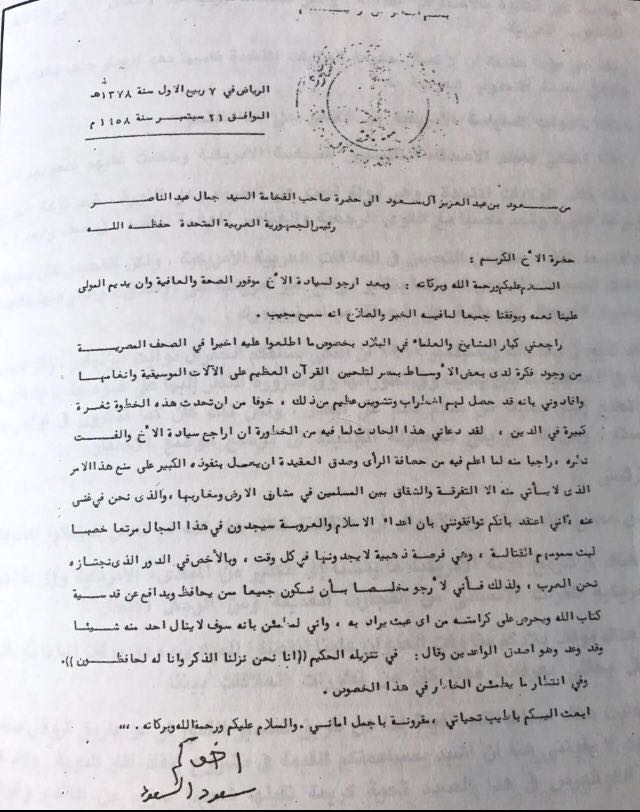 بسم الله الرحمن الرحيم
الرياض في ٧ ربيع الاول سنة ١٣٧٨هـ
الموافق ٢١ سبتمبر سنة ١٩٥٨ م
من سعود بن عبد العزيز آل سعود الى حضرة صاحب الفخامة السيد جمال عبد الناصر
رئيس الجمهورية العربية المتحدة حفظه الله
حضرة الأخ الكريم :
السلام عليكم ورحمة الله وبركاته : وبعد ارجو لسيادة الأخ موفور الصحة والعافية وان يديم المولى
علينا نعمه ويوفقنا جميعا لمافيه الخير والصلاح انه سميع مجيب .
راجعني كبار المشايخ والعلماء في البلاد بخصوص ما اطلعوا عليه اخيرا في الصحف المصرية
من وجود فكرة لدى بعض الأوساط بمصر لتلحين القرآن العظيم على الآلات الموسيقية وانغامها
وافادوني بانه قد حصل لهم اضطراب وتشويش عظيم من ذلك ، خوفا من ان تحدث هذه الخطوة ثغرة
كبيرة في الدين ، لقد دعاني هذا الحادث لما فيه من الخطورة ان اراجع سيادة الأخ والفت
نظره ، راجيا منه لما اعلم فيه من حصافة الرأى وصدق العقيدة ان يعمل بنفوذه الكبير على منع هذا الامر
الذى لا يأتي منه الا التفرقة والشقاق بين المسلمين في مشارق الارض ومغاربها ، والذى نحن في غنى
عنه فأني اعتقد بانكم توافقونني بان اعداء الاسلام والعروبة سيجدون في هذا المجال مرتعا خصبا
لبث سمومهم القتالة ، وهي فرصة ذهبية لا يجدونها في كل وقت ، وبالأخص في الدور الذى نجتازه
نحن العرب ، ولذلك فأني لأرجو مخلصا بأن نكون جميعا ممن يحافظ ويدافع عن قدسية
كتاب الله ويحرص على كرامته من اى عبث يراد به ، واني لمطمئن بانه سوف لا ينال احد منه شيئا
وقد وعد وهو اصدق الواعدين وقال : في تنزيله الحكيم ((انا نحن نزلنا الذكر وانا له لحافظون)).
وفي انتظار ما يطمئن الخاطر في هذا الخصوص .
ابعث اليكم باطيب تحياتي ، مقرونة باجمل اماني . والسلام عليكم ورحمة الله وبركاته . ،،،
اخوكم
سعود السعود